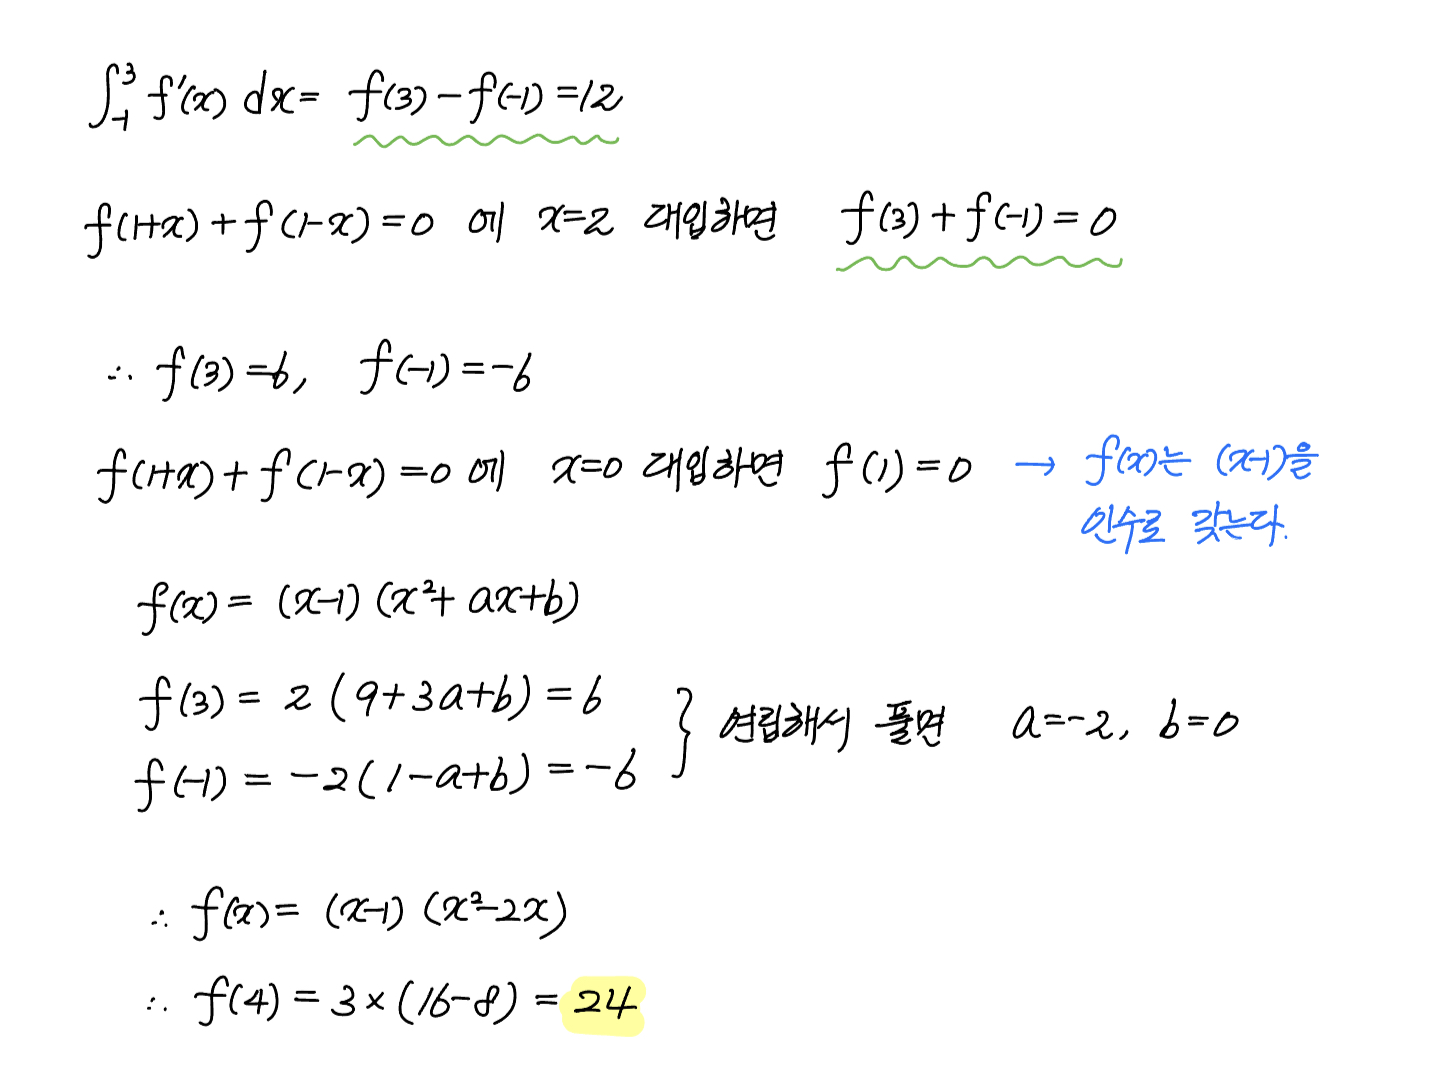 ∫₋₁³ f'(x) dx = f(3) - f(-1) = 12
f(1+x) + f(1-x) = 0 에 x=2 대입하면 f(3) + f(-1) = 0
∴ f(3) = 6, f(-1) = -6
f(1+x) + f(1-x) = 0 에 x=0 대입하면 f(1) = 0 → f(x)는 (x-1)을
인수로 갖는다.
f(x) = (x-1) (x²+ax+b)
f(3) = 2 (9+3a+b) = 6
f(-1) = -2 (1-a+b) = -6 } 연립해서 풀면 a=-2, b=0
∴ f(x) = (x-1) (x²-2x)
∴ f(4) = 3 × (16-8) = 24